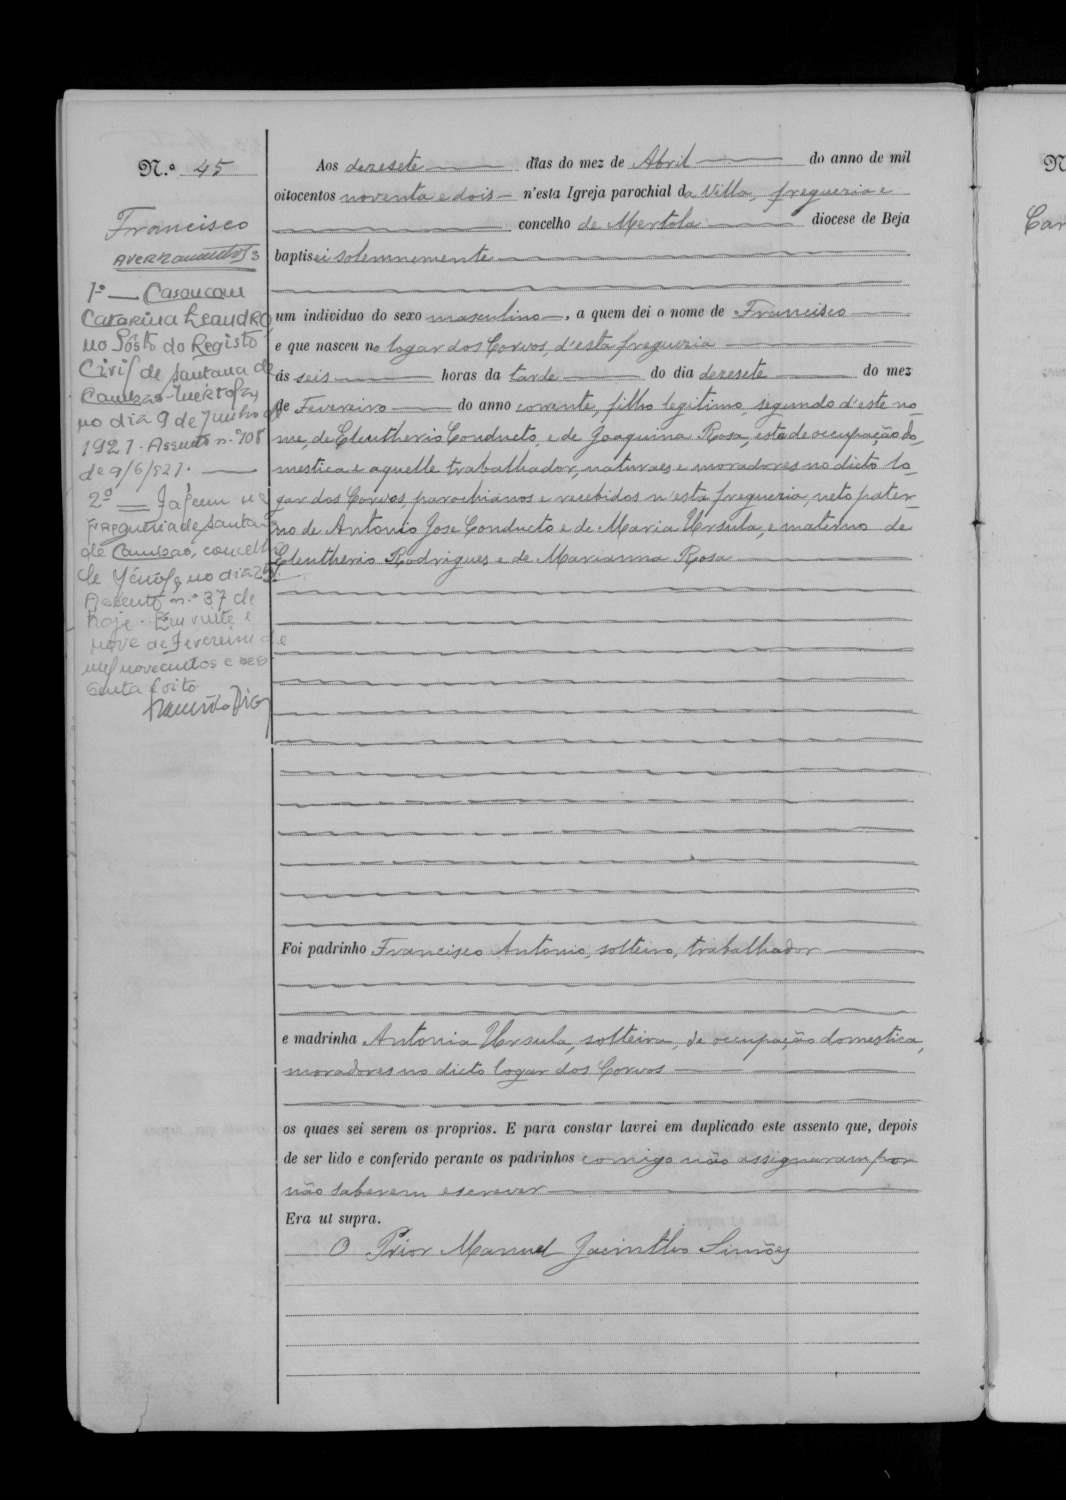 N.º 45
Francisco
Averbamentos
1º — Casou com
Catarina Leandro
no Pôsto do Registo
Civil de Santana de
Cambas-Mértola,
no dia 9 de Junho de
1921. Assento n.º 108
de 9/6/921. —
2º — Faleceu na
Freguesia de Santana
de Cambas, concelho
de Mértola, no dia
Assento n.º 37 de
hoje. Em vinte e
nove de Fevereiro de
mil novecentos e ses-
senta e oito
Aos dezesete — dias do mez de Abril — do anno de mil
oitocentos noventa e dois — n'esta Igreja parochial da Villa, freguezia e
— concelho de Mertola — diocese de Beja
baptisei solemnemente —
um individuo do sexo masculino —, a quem dei o nome de Francisco —
e que nasceu no logar dos Corvos, d'esta freguezia —
ás seis — horas da tarde — do dia dezesete — do mez
de Fevereiro — do anno corrente, filho legitimo, segundo d'este no-
me, de Eleutherio Conducto, e de Joaquina Rosa, esta de occupação do-
mestica e aquelle trabalhador, naturaes e moradores no dicto lo-
gar dos Corvos, parochianos e recebidos n'esta freguezia, neto pater-
no de Antonio Jose Conducto e de Maria Ursula, e materno de
Eleutherio Rodrigues e de Marianna Rosa —
Foi padrinho Francisco Antonio, solteiro, trabalhador —
e madrinha Antonia Ursula, solteira, de occupação domestica,
moradores no dicto logar dos Corvos —
os quaes sei serem os proprios. E para constar lavrei em duplicado este assento que, depois
de ser lido e conferido perante os padrinhos comigo não assignaram por
não saberem escrever —
Era ut supra.
O Prior Manuel Jacintho Simões
N
Car